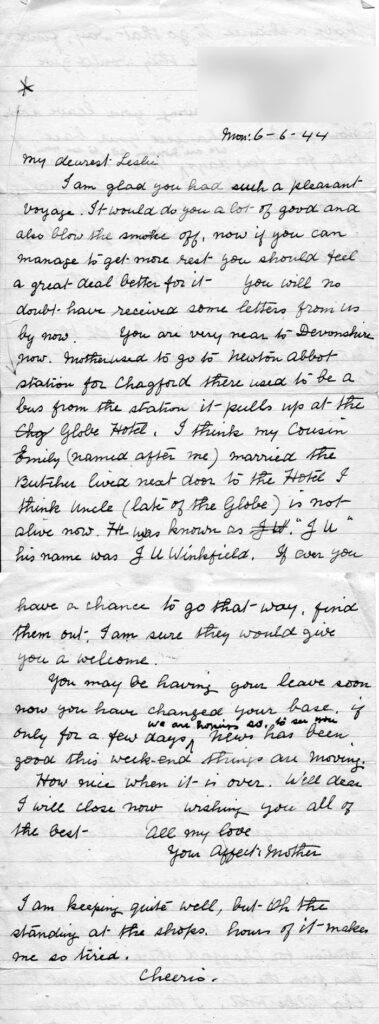 Mon: 6-6-44
My dearest Leslie
I am glad you had such a pleasant
voyage. It would do you a lot of good and
also blow the smoke off, now if you can
manage to get more rest you should feel
a great deal better for it You will no
doubt have received some letters from us
by now. You are very near to Devonshire
now. Mother used to go to Newton Abbot
station for Chagford there used to be a
bus from the station it pulls up at the
Chg Globe Hotel. I think my Cousin
Emily (named after me) married the
Butcher lived next door to the Hotel I
think Uncle (late of the Globe) is not
alive now. He was known as J W. "J U"
his name was J U Winkfield. If ever you
have a chance to go that way, find
them out, I am sure they would give
you a welcome.
You may be having your leave soon
now you have changed your base, if
we are hoping so. to see you
only for a few days, News has been
good this week-end things are moving.
How nice when it is over. Well dear
I will close now wishing you all of
the best- All my love
Your Affect: Mother
I am keeping quite well, but Oh the
standing at the shops. hours of it makes
me so tired.
Cheerio.